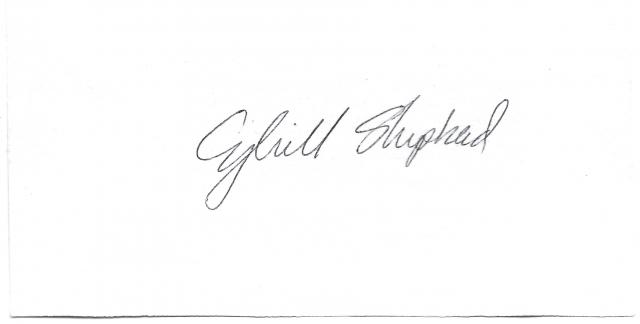 Cybill Shepherd